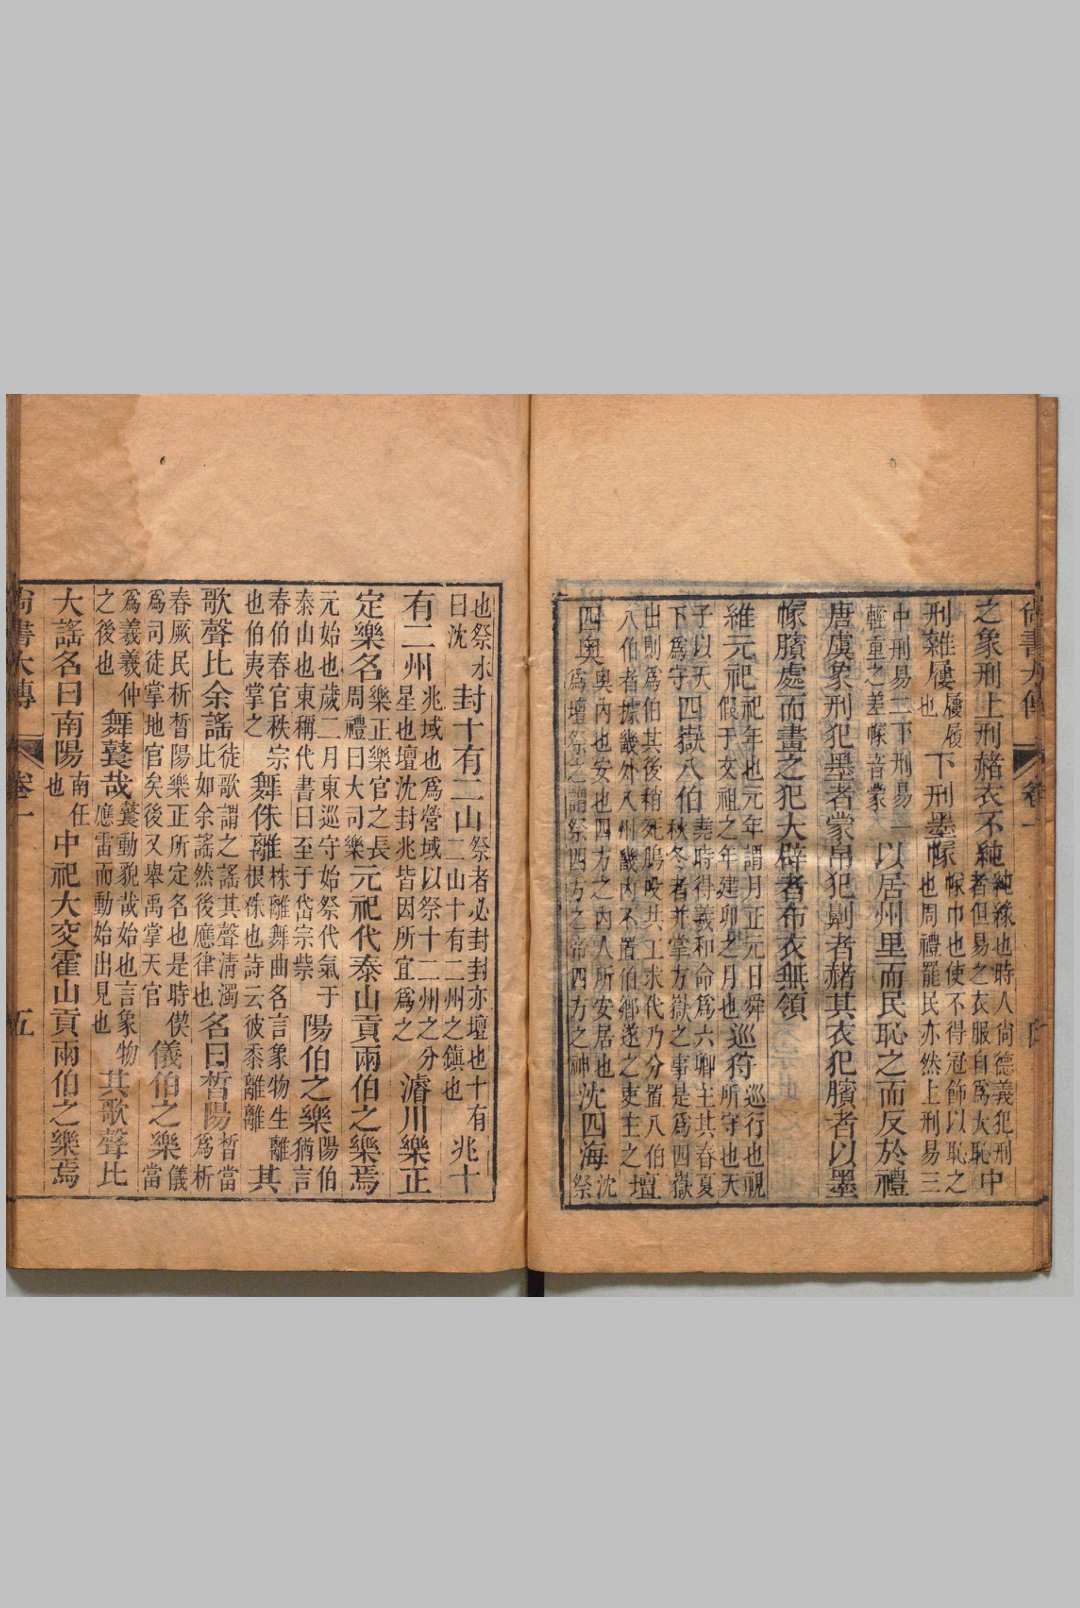 尚書大傳 卷一
之象刑上刑赭衣不純純緣也時人尚德義犯刑者但易之衣服自爲大恥中
刑雜屨屨履也下刑墨幪幪巾也使不得冠飾以恥之也周禮罷民亦然上刑易三
中刑易二下刑易一輕重之差幪音蒙以居州里而民恥之而反於禮
唐虞象刑犯墨者蒙帛犯劓者赭其衣犯臏者以墨
幪臏處而畫之犯大辟者布衣無領
維元祀祀年也元年謂月正元日舜假于文祖之年建卯之月也巡狩巡行也視所守也天
子以天下爲守四嶽八伯堯時得羲和命爲六卿主其春夏秋冬者并掌方嶽之事是爲四嶽
出則爲伯其後稍死鵰吺共工求代乃分置八伯八伯者據畿外八州畿內不置伯鄉遂之吏主之壇
四奧奧內也安也四方之內人所安居也爲壇祭之謂祭四方之帝四方之神沈四海沈祭
也祭水曰沈封十有二山祭者必封封亦壇也十有二山十有二州之鎮也兆十
有二州兆域也爲營域以祭十二州之分星也壇沈封兆皆因所宜爲之濬川樂正
定樂名樂正樂官之長周禮曰大司樂元祀代泰山貢兩伯之樂焉
元始也歲二月東巡守始祭代氣于泰山也東稱代書曰至于岱宗柴陽伯之樂陽伯猶言
春伯春官秩宗也伯夷掌之舞侏離株離舞曲名言象物生離根侏也詩云彼黍離離其
歌聲比余謠徒歌謂之謠其聲清濁比如余謠然後應律也名曰晳陽晳當爲析
春厥民析晳陽樂正所定名也是時偰爲司徒掌地官矣後又舉禹掌天官儀伯之樂儀當
爲羲羲仲之後也舞鼚哉鼚動貌哉始也言象物應雷而動始出見也其歌聲比
大謠名曰南陽南任也中祀大交霍山貢兩伯之樂焉
尚書大傳 卷一 五